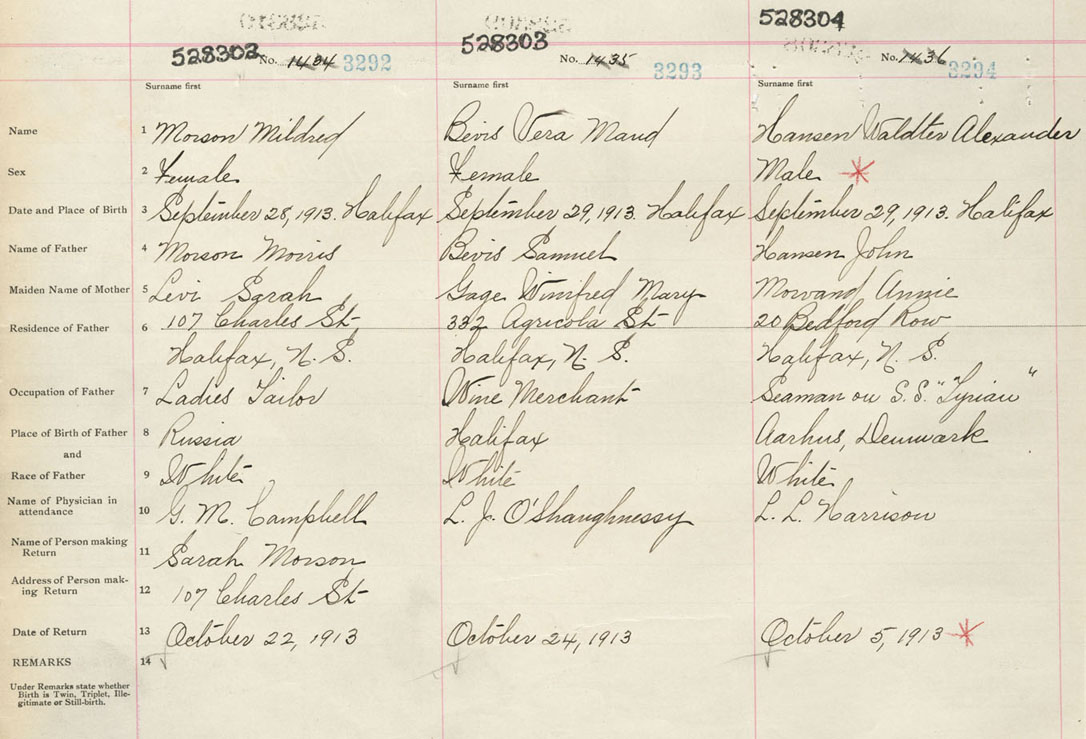 528302 No. 1434 3292
528303 No. 1435 3293
528304 No. 1436 3294
Surname first Surname first Surname first
Name 1 Morson Mildred Bevis Vera Maud Hansen Waldter Alexander
Sex 2 Female Female Male
Date and Place of Birth 3 September 28, 1913. Halifax September 29, 1913. Halifax September 29, 1913. Halifax
Name of Father 4 Morson Morris Bevis Samuel Hansen John
Maiden Name of Mother 5 Levi Sarah Gage Winifred Mary Annie
Residence of Father 6 107 Charles St 332 Agricola St 20 Bedford Row
Halifax, N. S. Halifax, N. S. Halifax, N. S.
Occupation of Father 7 Ladies Tailor Wine Merchant Seaman on S.S. "Tyrian"
Place of Birth of Father 8 Russia Halifax Aarhus, Denmark
and
Race of Father 9 White White White
Name of Physician in
attendance 10 G. M. Campbell L. J. O'Shaughnessy L. L. Harrison
Name of Person making
Return 11 Sarah Morson
Address of Person mak-
ing Return 12 107 Charles St
Date of Return 13 October 22, 1913 October 24, 1913 October 5, 1913
REMARKS 14
Under Remarks state whether
Birth is Twin, Triplet, Ille-
gitimate or Still-birth.